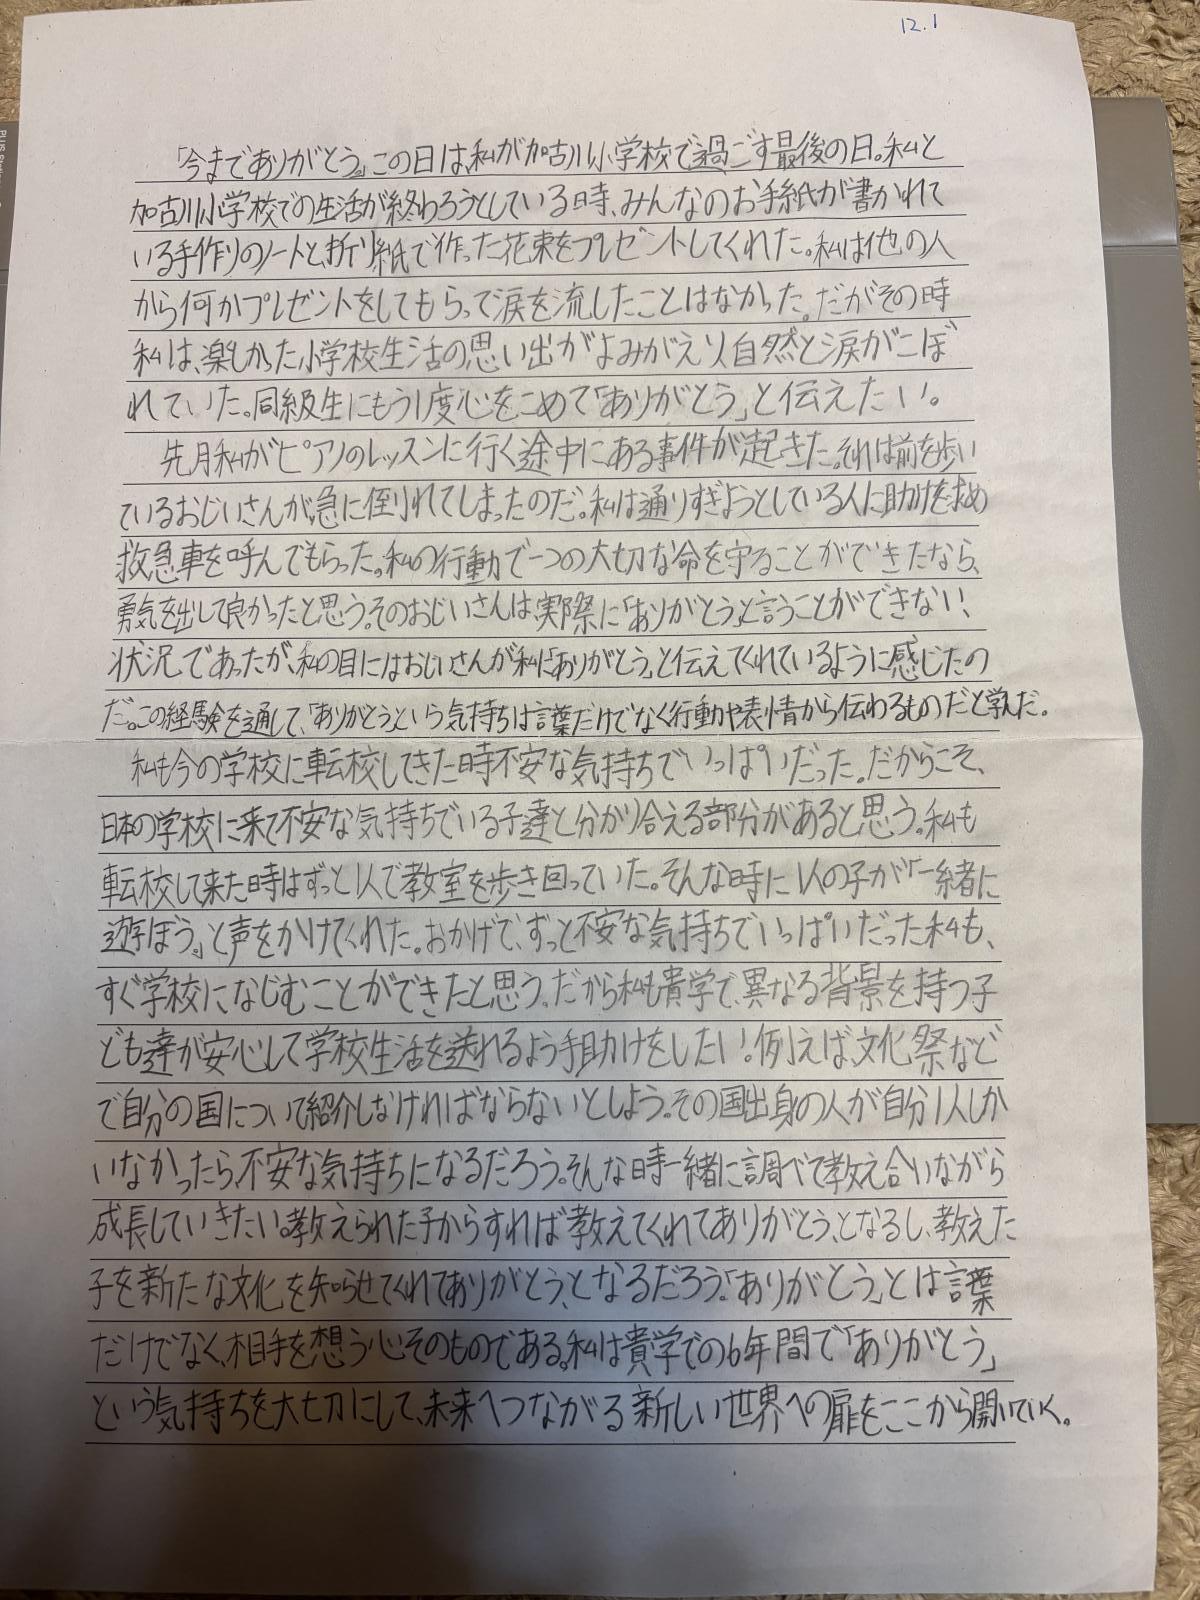 12.1
「今までありがとう。」この日は、私が加古川小学校で過ごす最後の日。私と
加古川小学校での生活が終わろうとしている時、みんなのお手紙が書かれて
いる手作りのノートと、折り紙で作った花束をプレゼントしてくれた。私は他の人
から何かプレゼントをしてもらって涙を流したことはなかった。だがその時
私は、楽しかった小学校生活の思い出がよみがえり自然と涙がこぼ
れていた。同級生にもう1度心をこめて「ありがとう」と伝えたい。
先月私がピアノのレッスンに行く途中にある事件が起きた。それは前を歩い
ているおじいさんが、急に倒れてしまったのだ。私は通りすぎようとしている人に助けを求め
救急車を呼んでもらった。私の行動で一つの大切な命を守ることができたなら、
勇気を出して良かったと思う。そのおじいさんは、実際に「ありがとう」と言うことができない、
状況であったが、私の目にはおじいさんが私に「ありがとう。」と伝えてくれているように感じたの
だ。この経験を通して、「ありがとう」という気持ちは言葉だけでなく行動や表情から伝わるものだと学んだ。
私も今の学校に転校してきた時不安な気持ちでいっぱいだった。だからこそ、
日本の学校に来て不安な気持ちでいる子達と分かり合える部分があると思う。私も
転校して来た時はずっと1人で教室を歩き回っていた。そんな時に1人の子が「一緒に
遊ぼう。」と声をかけてくれた。おかげで、ずっと不安な気持ちでいっぱいだった私も、
すぐ学校になじむことができたと思う。だから私も貴学で、異なる背景を持つ子
ども達が安心して学校生活を送れるよう手助けをしたい！例えば、文化祭など
で自分の国について紹介しなければならないとしよう。その国出身の人が自分1人しか
いなかったら、不安な気持ちになるだろう。そんな時一緒に調べて教え合いながら
成長していきたい。教えられた子からすれば教えてくれてありがとう、となるし、教えた
子を新たな文化を知らせてくれてありがとう、となるだろう。「ありがとう」とは言葉
だけでなく、相手を想う心そのものである。私は貴学での6年間で「ありがとう」
という気持ちを大切にして、未来へつながる新しい世界への扉をここから開いていく。